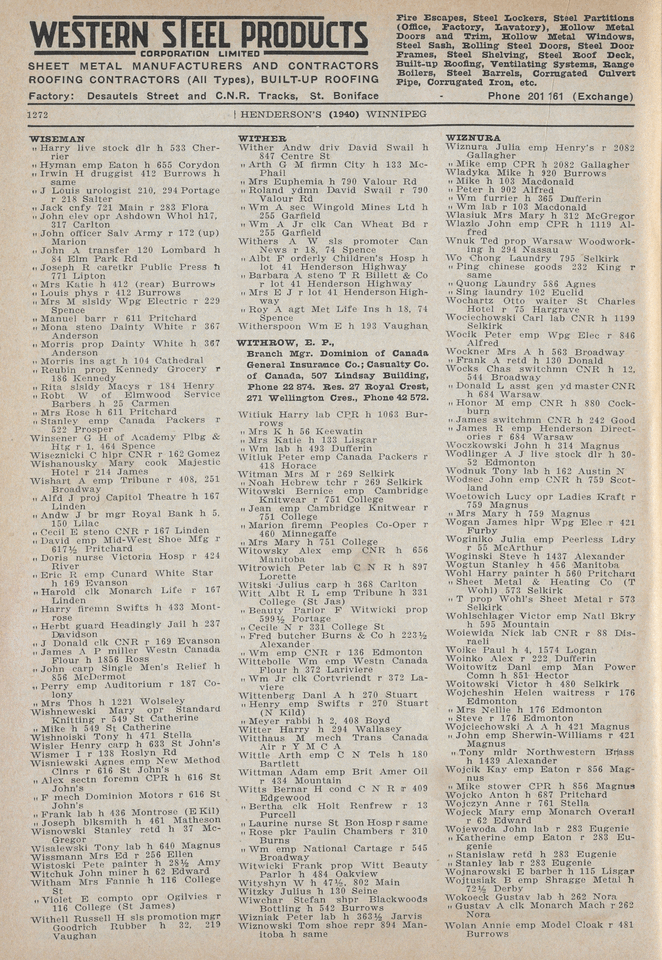 WESTERN STEEL PRODUCTS
CORPORATION LIMITED
SHEET METAL MANUFACTURERS AND CONTRACTORS
ROOFING CONTRACTORS (All Types), BUILT-UP ROOFING
Fire Escapes, Steel Lockers, Steel Partitions
(Office, Factory, Lavatory), Hollow Metal
Doors and Trim, Hollow Metal Windows,
Steel Sash, Rolling Steel Doors, Steel Door
Frames, Steel Shelving, Steel Roof Deck,
Built-up Roofing, Ventilating Systems, Range
Boilers, Steel Barrels, Corrugated Culvert
Pipe, Corrugated Iron, etc.
Factory: Desautels Street and C.N.R. Tracks, St. Boniface - Phone 201 161 (Exchange)
1272 HENDERSON'S (1940) WINNIPEG
WISEMAN
„ Harry live stock dlr h 533 Cher-
rier
„ Hyman emp Eaton h 655 Corydon
„ Irwin H druggist 412 Burrows h
same
„ J Louis urologist 210, 294 Portage
r 218 Salter
„ Jack cnfy 721 Main r 283 Flora
„ John elev opr Ashdown Whol h17,
317 Carlton
„ John officer Salv Army r 172 (up)
Marion
„ John A transfer 120 Lombard h
84 Elm Park Rd
„ Joseph R caretkr Public Press h
771 Lipton
„ Mrs Katie h 412 (rear) Burrows
„ Louis phys r 412 Burrows
„ Mrs M slsldy Wpg Electric r 229
Spence
„ Manuel barr r 611 Pritchard
„ Mona steno Dainty White r 367
Anderson
„ Morris prop Dainty White h 367
Anderson
„ Morris ins agt h 104 Cathedral
„ Reubin prop Kennedy Grocery r
186 Kennedy
„ Rita slsldy Macys r 184 Henry
„ Robt W of Elmwood Service
Barbers h 25 Carmen
„ Mrs Rose h 611 Pritchard
„ Stanley emp Canada Packers r
522 Prosper
Winsener G H of Academy Plbg &
Htg r 1, 464 Spence
Wiseznicki C hlpr CNR r 162 Gomez
Wishanousky Mary cook Majestic
Hotel r 214 James
Wishart A emp Tribune r 408, 251
Broadway
„ Alfd J proj Capitol Theatre h 167
Linden
„ Andw J br mgr Royal Bank h 5,
150 Lilac
„ Cecil E steno CNR r 167 Linden
„ David emp Mid-West Shoe Mfg r
617½ Pritchard
„ Doris nurse Victoria Hosp r 424
River
„ Eric R emp Cunard White Star
h 169 Evanson
„ Harold clk Monarch Life r 167
Linden
„ Harry firemn Swifts h 433 Mont-
rose
„ Herbt guard Headingly Jail h 237
Davidson
„ J Donald clk CNR r 169 Evanson
„ James A P miller Westn Canada
Flour h 1856 Ross
„ John carp Single Men's Relief h
856 McDermot
„ Perry emp Auditorium r 187 Co-
lony
„ Mrs Thos h 1221 Wolseley
Wishnewski Mary opr Standard
Knitting r 549 St Catherine
„ Mike h 549 St Catherine
Wishnoiski Tony h 471 Stella
Wisler Henry carp h 633 St John's
Wismer I r 138 Roslyn Rd
Wisniewski Agnes emp New Method
Clnrs r 616 St John's
„ Alex sectn foremn CPR h 616 St
John's
„ F mech Dominion Motors r 616 St
John's
„ Frank lab h 436 Montrose (E Kil)
„ Joseph blksmith h 461 Matheson
Wisnowski Stanley retd h 37 Mc-
Gregor
Wisalewski Tony lab h 640 Magnus
Wissmann Mrs Ed r 256 Ellen
Wistoski Pete painter h 28½ Amy
Witchuk John miner h 62 Edward
Witham Mrs Fannie h 116 College
St
„ Violet E compto opr Ogilvies r
116 College (St James)
Withell Russell H sls promotion mgr
Goodrich Rubber h 32, 219
Vaughan
WITHER
Wither Andw driv David Swail h
847 Centre St
„ Arth G M firmn City h 133 Mc-
Phail
„ Mrs Euphemia h 790 Valour Rd
„ Roland ydmn David Swail r 790
Valour Rd
„ Wm A sec Wingold Mines Ltd h
255 Garfield
„ Wm A Jr clk Can Wheat Bd r
255 Garfield
Withers A W sls promoter Can
News r 18, 74 Spence
„ Albt F orderly Children's Hosp h
lot 41 Henderson Highway
„ Barbara A steno T R Billett & Co
r lot 41 Henderson Highway
„ Mrs E J r lot 41 Henderson High-
way
„ Roy A agt Met Life Ins h 18, 74
Spence
Witherspoon Wm E h 193 Vaughan
WITHROW, E. P.,
Branch Mgr. Dominion of Canada
General Insurance Co.; Casualty Co.
of Canada, 507 Lindsay Building,
Phone 22 874. Res. 27 Royal Crest,
271 Wellington Cres., Phone 42 572.
Witiuk Harry lab CPR h 1063 Bur-
rows
„ Mrs K h 56 Keewatin
„ Mrs Katie h 133 Lisgar
„ Wm lab h 493 Dufferin
Witluk Peter emp Canada Packers r
418 Horace
Witman Mrs M r 269 Selkirk
„ Noah Hebrew tchr r 269 Selkirk
Witowski Bernice emp Cambridge
Knitwear r 751 College
„ Jean emp Cambridge Knitwear r
751 College
„ Marion firemn Peoples Co-oper r
460 Minnegaffe
„ Mrs Mary h 751 College
Witowsky Alex emp CNR h 656
Manitoba
Witrowich Peter lab C N R h 897
Lorette
Witski Julius carp h 368 Carlton
Witt Albt R L emp Tribune h 331
College (St Jas)
„ Beauty Parlor F Witwicki prop
599½ Portage
„ Cecile N r 331 College St
„ Fred butcher Burns & Co h 223½
Alexander
„ Wm emp CNR h 136 Edmonton
Wittebolle Wm emp Westn Canada
Flour h 372 Lariviere
„ Wm Jr clk Cortvriendt r 372 La-
viere
Wittenberg Danl A h 270 Stuart
„ Henry emp Swifts r 270 Stuart
(N Kild)
„ Meyer rabbi h 2, 408 Boyd
Witter Harry h 294 Wallasey
Witthaus M mech Trans Canada
Air r Y M C A
Wittle Arth emp C N Tels h 180
Bartlett
Wittman Adam emp Brit Amer Oil
r 434 Mountain
Witts Bernar H cond C N R r 409
Edgewood
„ Bertha clk Holt Renfrew r 13
Purcell
„ Laurine nurse St Bon Hosp r same
„ Rose pkr Paulin Chambers r 310
Burns
„ Wm emp National Cartage r 545
Broadway
Witwicki Frank prop Witt Beauty
Parlor h 484 Oakview
Wityshyn W h 47½, 802 Main
Witzky Julius h 130 Seine
Wiwchar Stefan shpr Blackwoods
Bottling h 542 Burrows
Wizniak Peter lab h 363½ Jarvis
Wiznowski Tom shoe repr 894 Man-
itoba h same
WIZNURA
Wiznura Julia emp Henry's r 2082
Gallagher
„ Mike emp CPR h 2082 Gallagher
Wladyka Mike h 920 Burrows
„ Mike h 103 Macdonald
„ Peter h 902 Alfred
„ Wm furrier h 365 Dufferin
„ Wm lab r 103 Macdonald
Wlasiuk Mrs Mary h 312 McGregor
Wlazlo John emp CPR h 1119 Al-
fred
Wnuk Ted prop Warsaw Woodwork-
ing h 294 Nassau
Wo Chong Laundry 795 Selkirk
„ Ping chinese goods 232 King r
same
„ Quong Laundry 586 Agnes
„ Sing laundry 102 Euclid
Wochartz Otto waiter St Charles
Hotel r 75 Hargrave
Wociechowski Carl lab CNR h 1199
Selkirk
Wocik Peter emp Wpg Elec r 846
Alfred
Wockner Mrs A h 563 Broadway
„ Frank A retd h 130 Donald
Wocks Chas switchmn CNR h 12,
544 Broadway
„ Donald L asst gen yd master CNR
h 684 Warsaw
„ Honor M emp CNR h 880 Cock-
burn
„ James switchmn CNR h 242 Good
„ James R emp Henderson Direct-
ories r 684 Warsaw
Woczkowski John h 314 Magnus
Wodlinger A J live stock dlr h 30-
52 Edmonton
Wodnuk Tony lab h 162 Austin N
Wodsec John emp CNR h 759 Scot-
land
Woetowich Lucy opr Ladies Kraft r
759 Magnus
„ Mrs Mary h 759 Magnus
Wogan James hlpr Wpg Elec r 421
Furby
Woginiku Julia emp Peerless Ldry
r 55 McArthur
Woginski Steve h 1437 Alexander
Wogtun Stanley h 456 Manitoba
Wohl Harry painter h 560 Pritchard
„ Sheet Metal & Heating Co (T
Wohl) 573 Selkirk
„ T prop Wohl's Sheet Metal r 573
Selkirk
Wohlschlager Victor emp Natl Bkry
h 595 Mountain
Woiewida Nick lab CNR r 88 Dis-
raeli
Woike Paul h 4, 1574 Logan
Woinko Alex r 222 Dufferin
Woitowitz Danl emp Man Power
Comn h 851 Hector
Woitowski Victor h 480 Selkirk
Wojcheshin Helen waitress r 176
Edmonton
„ Mrs Nellie h 176 Edmonton
„ Steve r 176 Edmonton
Wojciechowski A A h 421 Magnus
„ John emp Sherwin-Williams r 421
Magnus
„ Tony mldr Northwestern Brass
h 1439 Alexander
Wojcik Kay emp Eaton r 856 Mag-
nus
„ Mike stower CPR h 856 Magnus
Wojcko Anton h 687 Pritchard
Wojczyn Anne r 761 Stella
Wojeck Mary emp Monarch Overall
r 62 Edward
Wojewoda John lab r 283 Eugenie
„ Katherine emp Eaton r 283 Eu-
genie
„ Stanislaw retd h 283 Eugenie
„ Stanley lab r 283 Eugenie
Wojnarowski E barber h 115 Lisgar
Wojtusiak B emp Shragge Metal h
72½ Derby
Wokoeck Gustav lab h 262 Nora
„ Gustav A clk Monarch Mach r 262
Nora
Wolan Annie emp Model Cloak r 481
Burrows